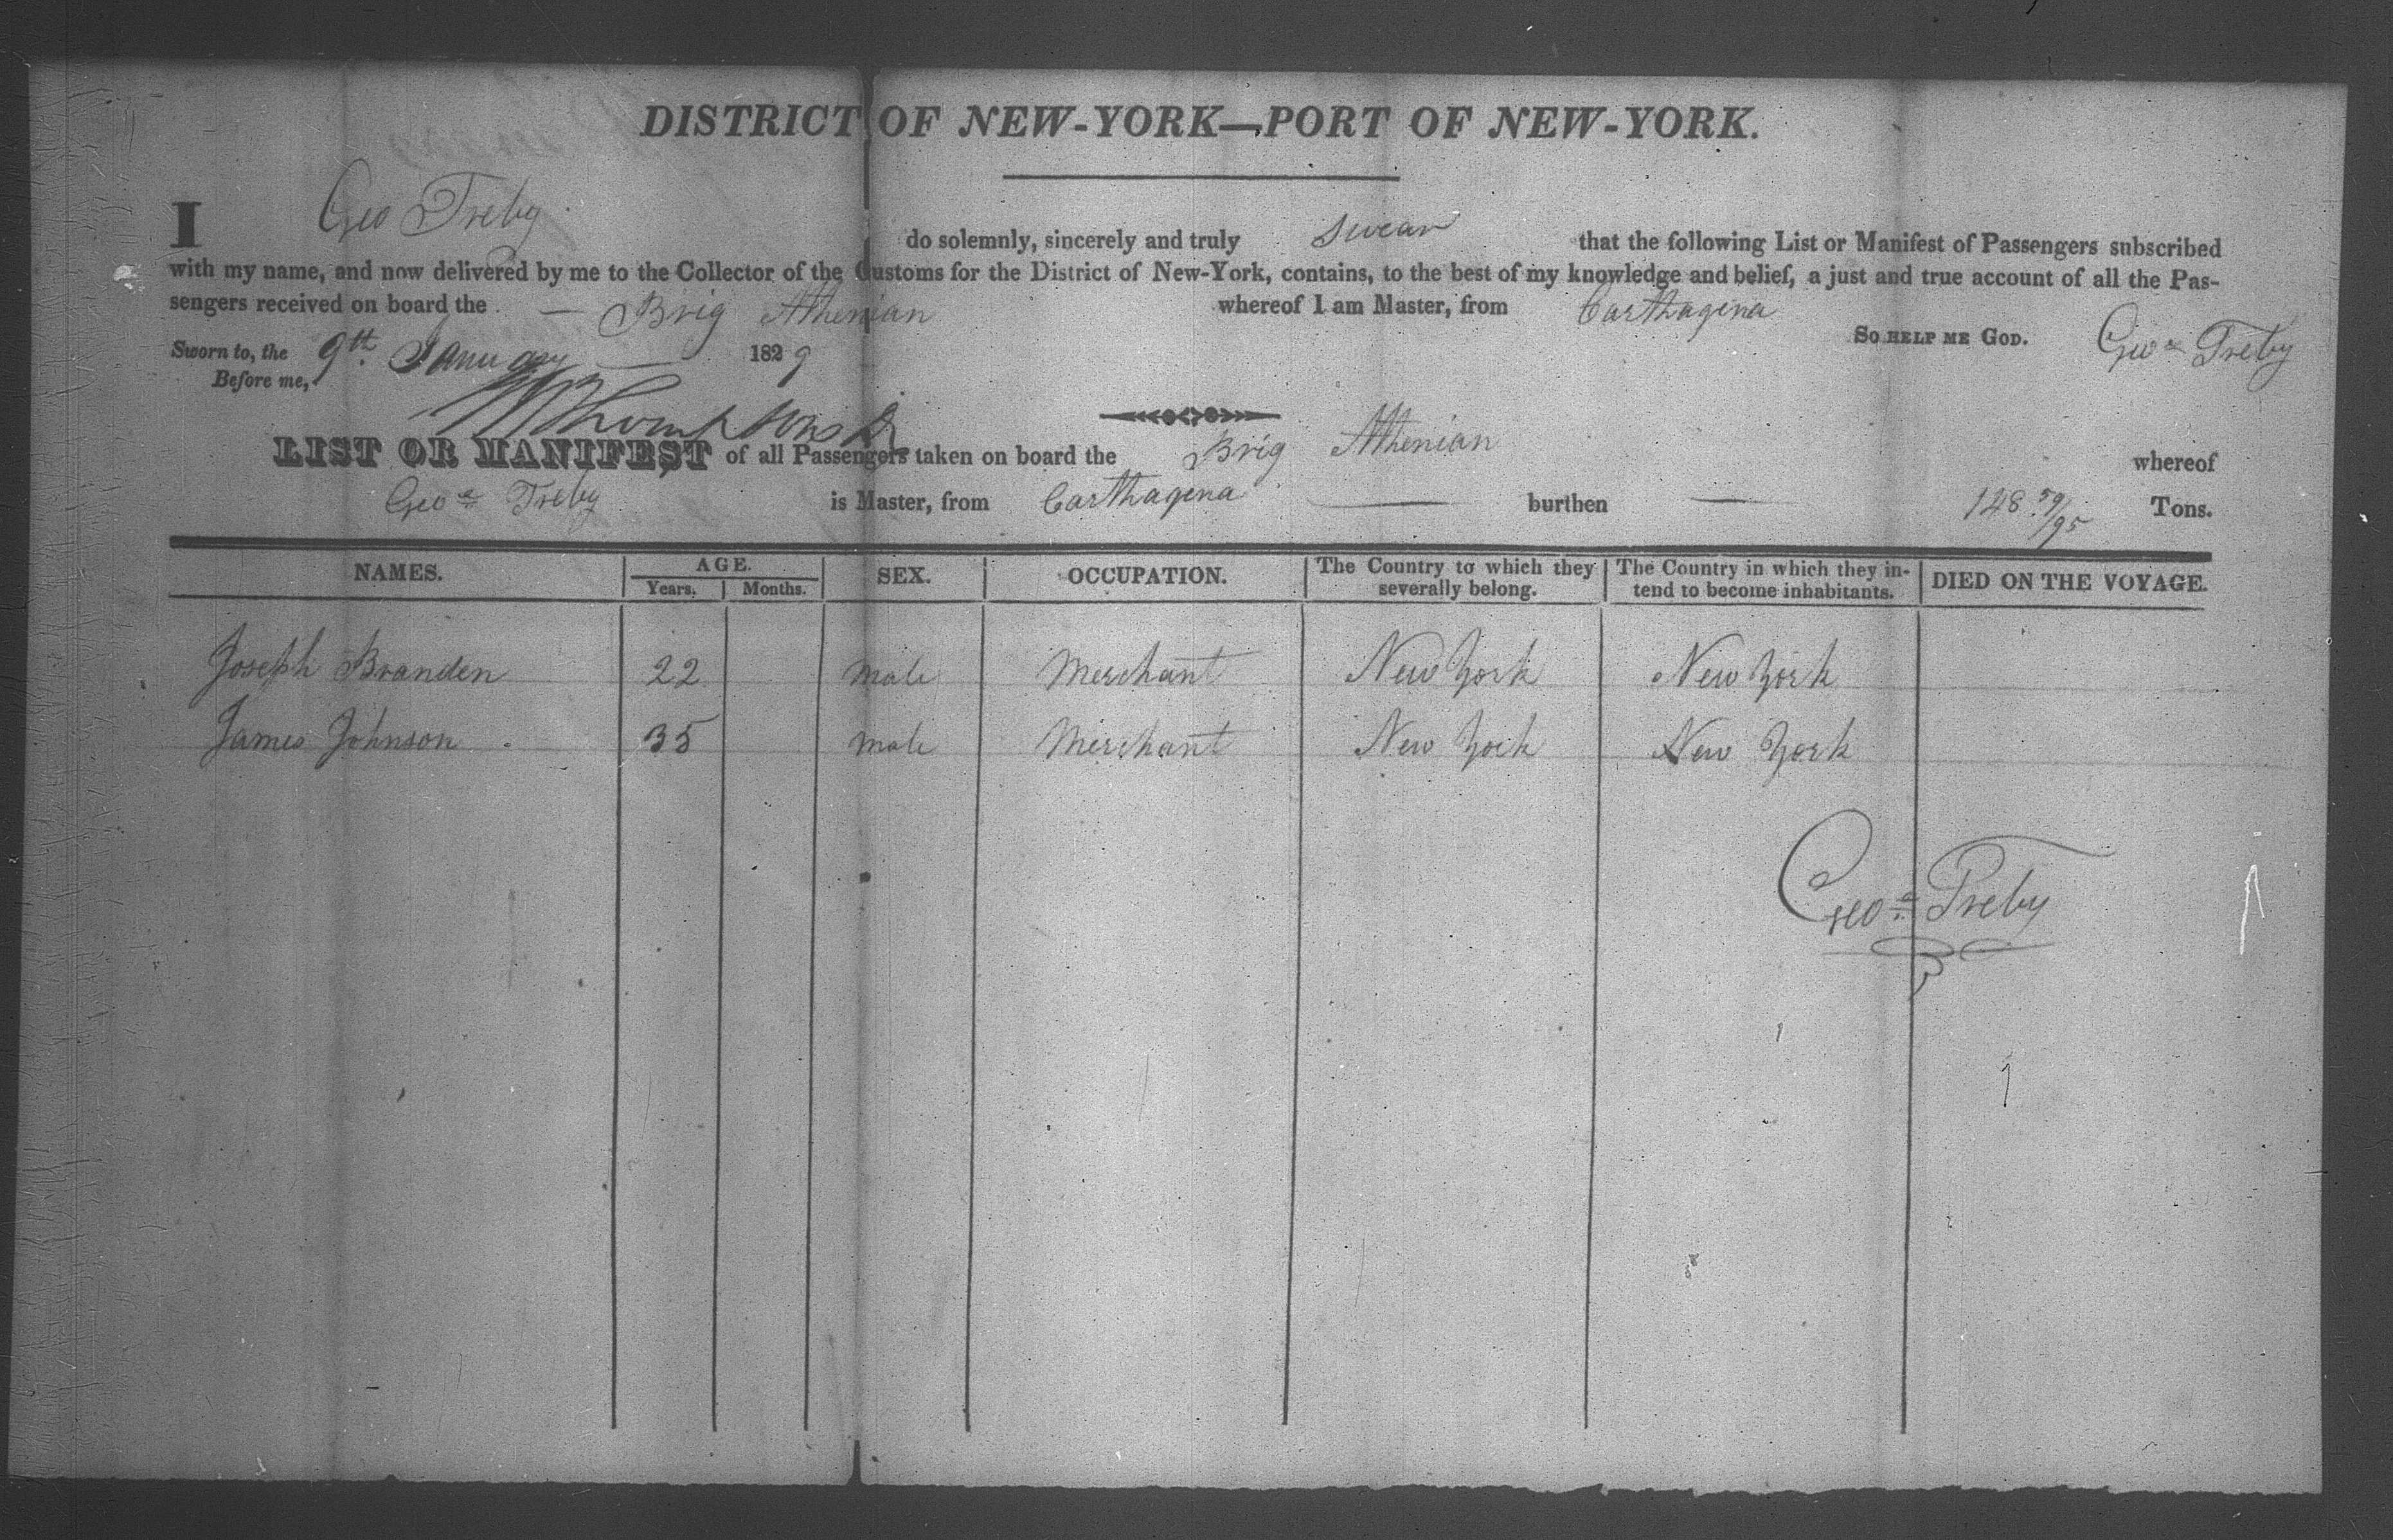 DISTRICT OF NEW-YORK—PORT OF NEW-YORK.
I Geo Treby do solemnly, sincerely and truly swear that the following List or Manifest of Passengers subscribed
with my name, and now delivered by me to the Collector of the Customs for the District of New-York, contains, to the best of my knowledge and belief, a just and true account of all the Pas-
sengers received on board the — Brig Athenian whereof I am Master, from Carthagena
So help me God. Geo Treby
Sworn to, the 9th January 1829
Before me,
Thompson
LIST OR MANIFEST of all Passengers taken on board the Brig Athenian whereof
Geo Treby is Master, from Carthagena — burthen — 148 59/95 Tons.
NAMES. AGE. SEX. OCCUPATION. The Country to which they severally belong. The Country in which they in-tend to become inhabitants. DIED ON THE VOYAGE.
Years. Months.
Joseph Branden 22 male Merchant New York New York
James Johnson 35 male Merchant New York New York
Geo Treby